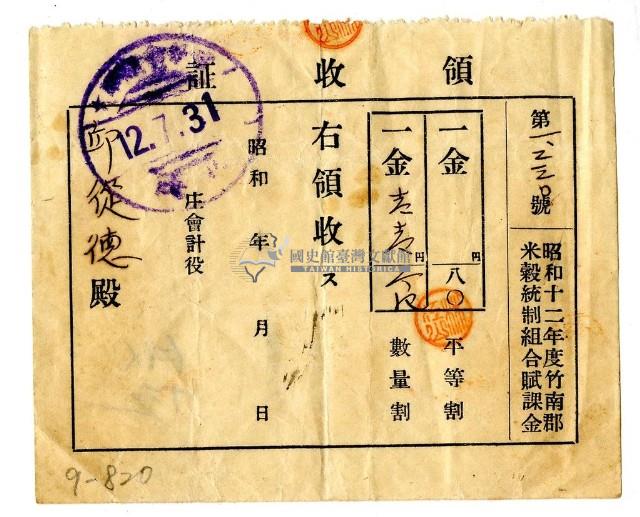 領收証
第一、二三〇號
昭和十二年度竹南郡
米穀統制組合賦課金
一金 円八〇 平等割
一金 円 數量割
右領收ス
昭和 年 月 日
庄會計役
邱從德殿
12.7.31
國史館臺灣文獻館
TAIWAN HISTORICA
9-820